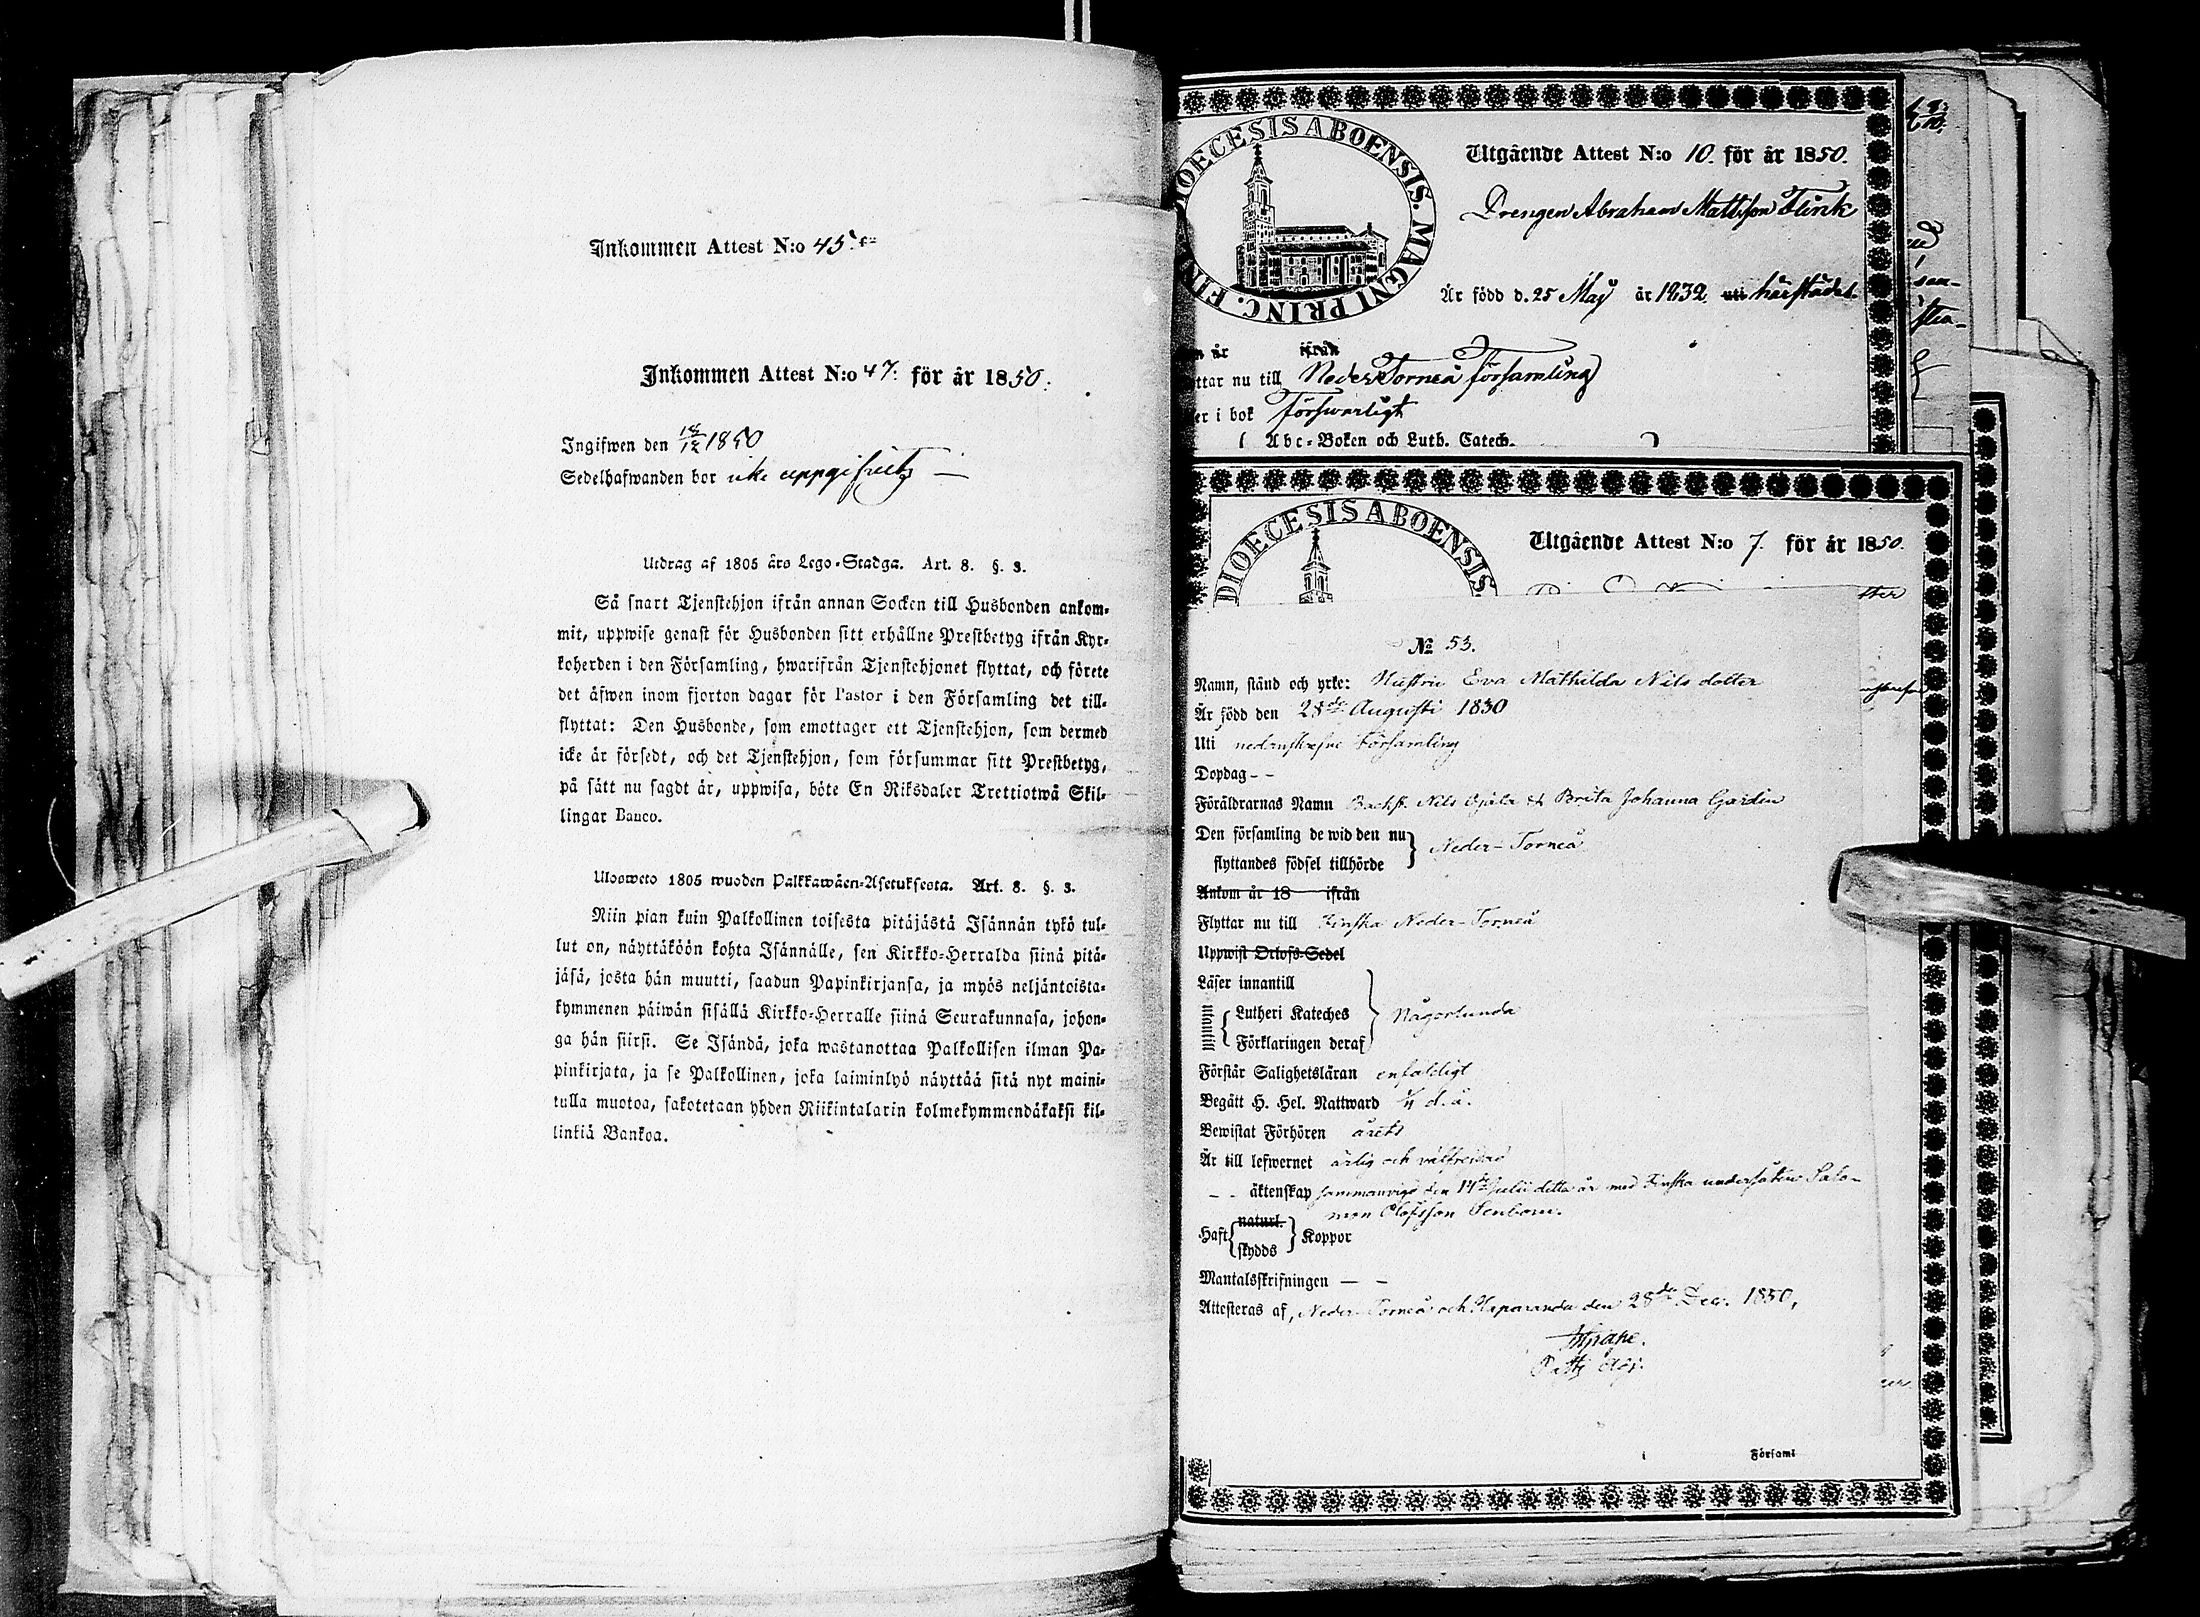 Inkommen Attest N:o 45.
Inkommen Attest N:o 47. för år 1850.
Ingifwen den 18/12 1850
Sedelhafwanden bor
Utdrag af 1805 års Lego-Stadga. Art. 8. §. 3.
Så snart Tjenstehjon ifrån annan Socken till Husbonden ankom-
mit, uppwise genast för Husbonden sitt erhållne Prestbetyg ifrån Kyr-
koherden i den Församling, hwarifrån Tjenstehjonet flyttat, och förete
det äfwen inom fjorton dagar för Pastor i den Församling det till-
flyttat: Den Husbonde, som emottager ett Tjenstehjon, som dermed
icke är försedt, och det Tjenstehjon, som försummar sitt Prestbetyg,
på sätt nu sagdt är, uppwisa, böte En Riksdaler Trettiotwå Skil-
lingar Banco.
Ulosweto 1805 wuoden Palkkawäen-Asetuksesta. Art. 8. §. 3.
Niin pian kuin Palkollinen toisesta pitäjästä Isännän tykö tul-
lut on, näyttäköön kohta Isännälle, sen Kirkko-Herralda siinä pitä-
jäsä, josta hän muutti, saadun Papinkirjansa, ja myös neljäntoista-
kymmenen päiwän sisällä Kirkko-Herralle siinä Seurakunnasa, johon-
ga hän siirsi. Se Isändä, joka wastanottaa Palkollisen ilman Pa-
pinkirjata, ja se Palkollinen, joka laiminlyö näyttää sitä nyt maini-
tulla muotoa, sakotetaan yhden Riikintalarin kolmekymmendäkaksi kil-
linkiä Bankoa.
DIOECESIS ABOENSIS. MAGNI PRINC. FIN
Utgående Attest N:o 10. för år 1850.
Drengen Abraham Mattsson Flink
Är född d. 25 Maj år 1832 uti härstädes.
år ifrån
ttar nu till Neder Torneå församling
er i bok försvarligt
Abc-Boken och Luth. Catech.
DIOECESIS ABOENSIS.
Utgående Attest N:o 7. för år 1850.
№ 53.
Namn, stånd och yrke: Hustru Eva Mathilda Nils dotter
Är född den 28de Augusti 1830
Uti nedanskrefne Församling
Dopdag - -
Föräldrarnas Namn Backst. Nils Ojala & Brita Johanna Gardin
Den församling de wid den nu
flyttandes födsel tillhörde } Neder-Torneå
Ankom år 18 ifrån
Flyttar nu till Finska Neder-Torneå
Uppwist Orlofs-Sedel
Läser innantill
Lutheri Kateches } Någorlunda
Förklaringen deraf
Förstår Salighetsläran enfaldigt
Begått H. Hel. Nattward d. å.
Bewistat Förhören årets
Är till lefwernet ärlig och välfrejdad
- - äktenskap sammanvigd den 14de Julii detta år med Finska undersåten Salo-
mon Olofsson Stenbom.
Haft { naturl. skydds } Koppor
Mantalsskrifningen — -
Attesteras af, Neder-Torneå och Haparanda den 28de Dec. 1850,
Församl